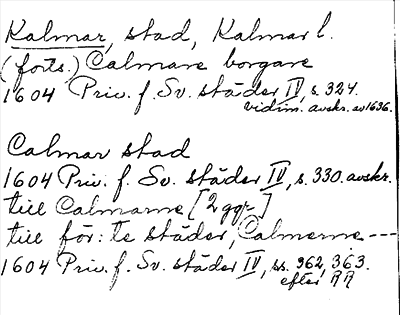 Kalmar, stad, Kalmar l.
(forts.) Calmare borgare
1604 Priv. f. Sv. städer IV, s. 324.
vidim. avskr. av 1636.
Calmar stad
1604 Priv. f. Sv. städer IV, s. 330. avskr.
till Calmarne [2 ggr.]
till för:te städer, Calmerne ---
1604 Priv. f. Sv. städer IV, ss. 362, 363.
efter RR